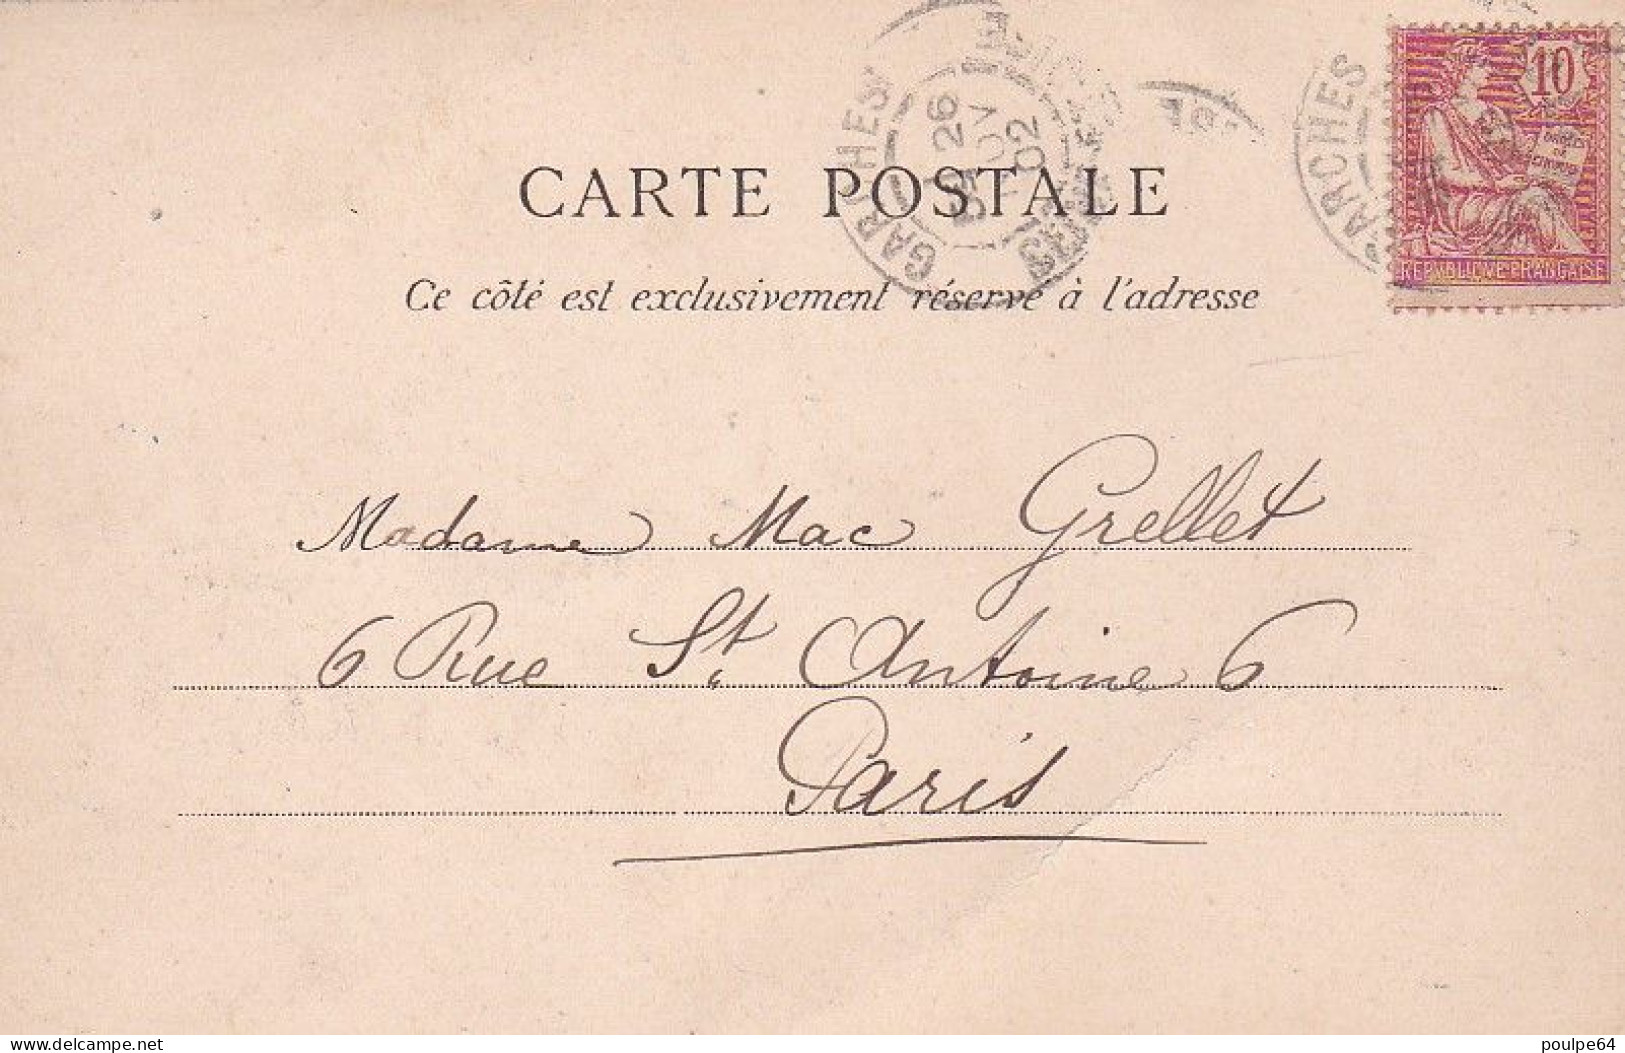 GARCHES
26
NOV
02
GARCHES
10
DROITS
DE
L'HOMME
REPVBLIQVE FRANÇAISE
CARTE POSTALE
Ce côté est exclusivement réservé à l'adresse
Madame Mac Grellet
6 Rue St. Antoine 6
Paris
delcampe.net
poulpe64